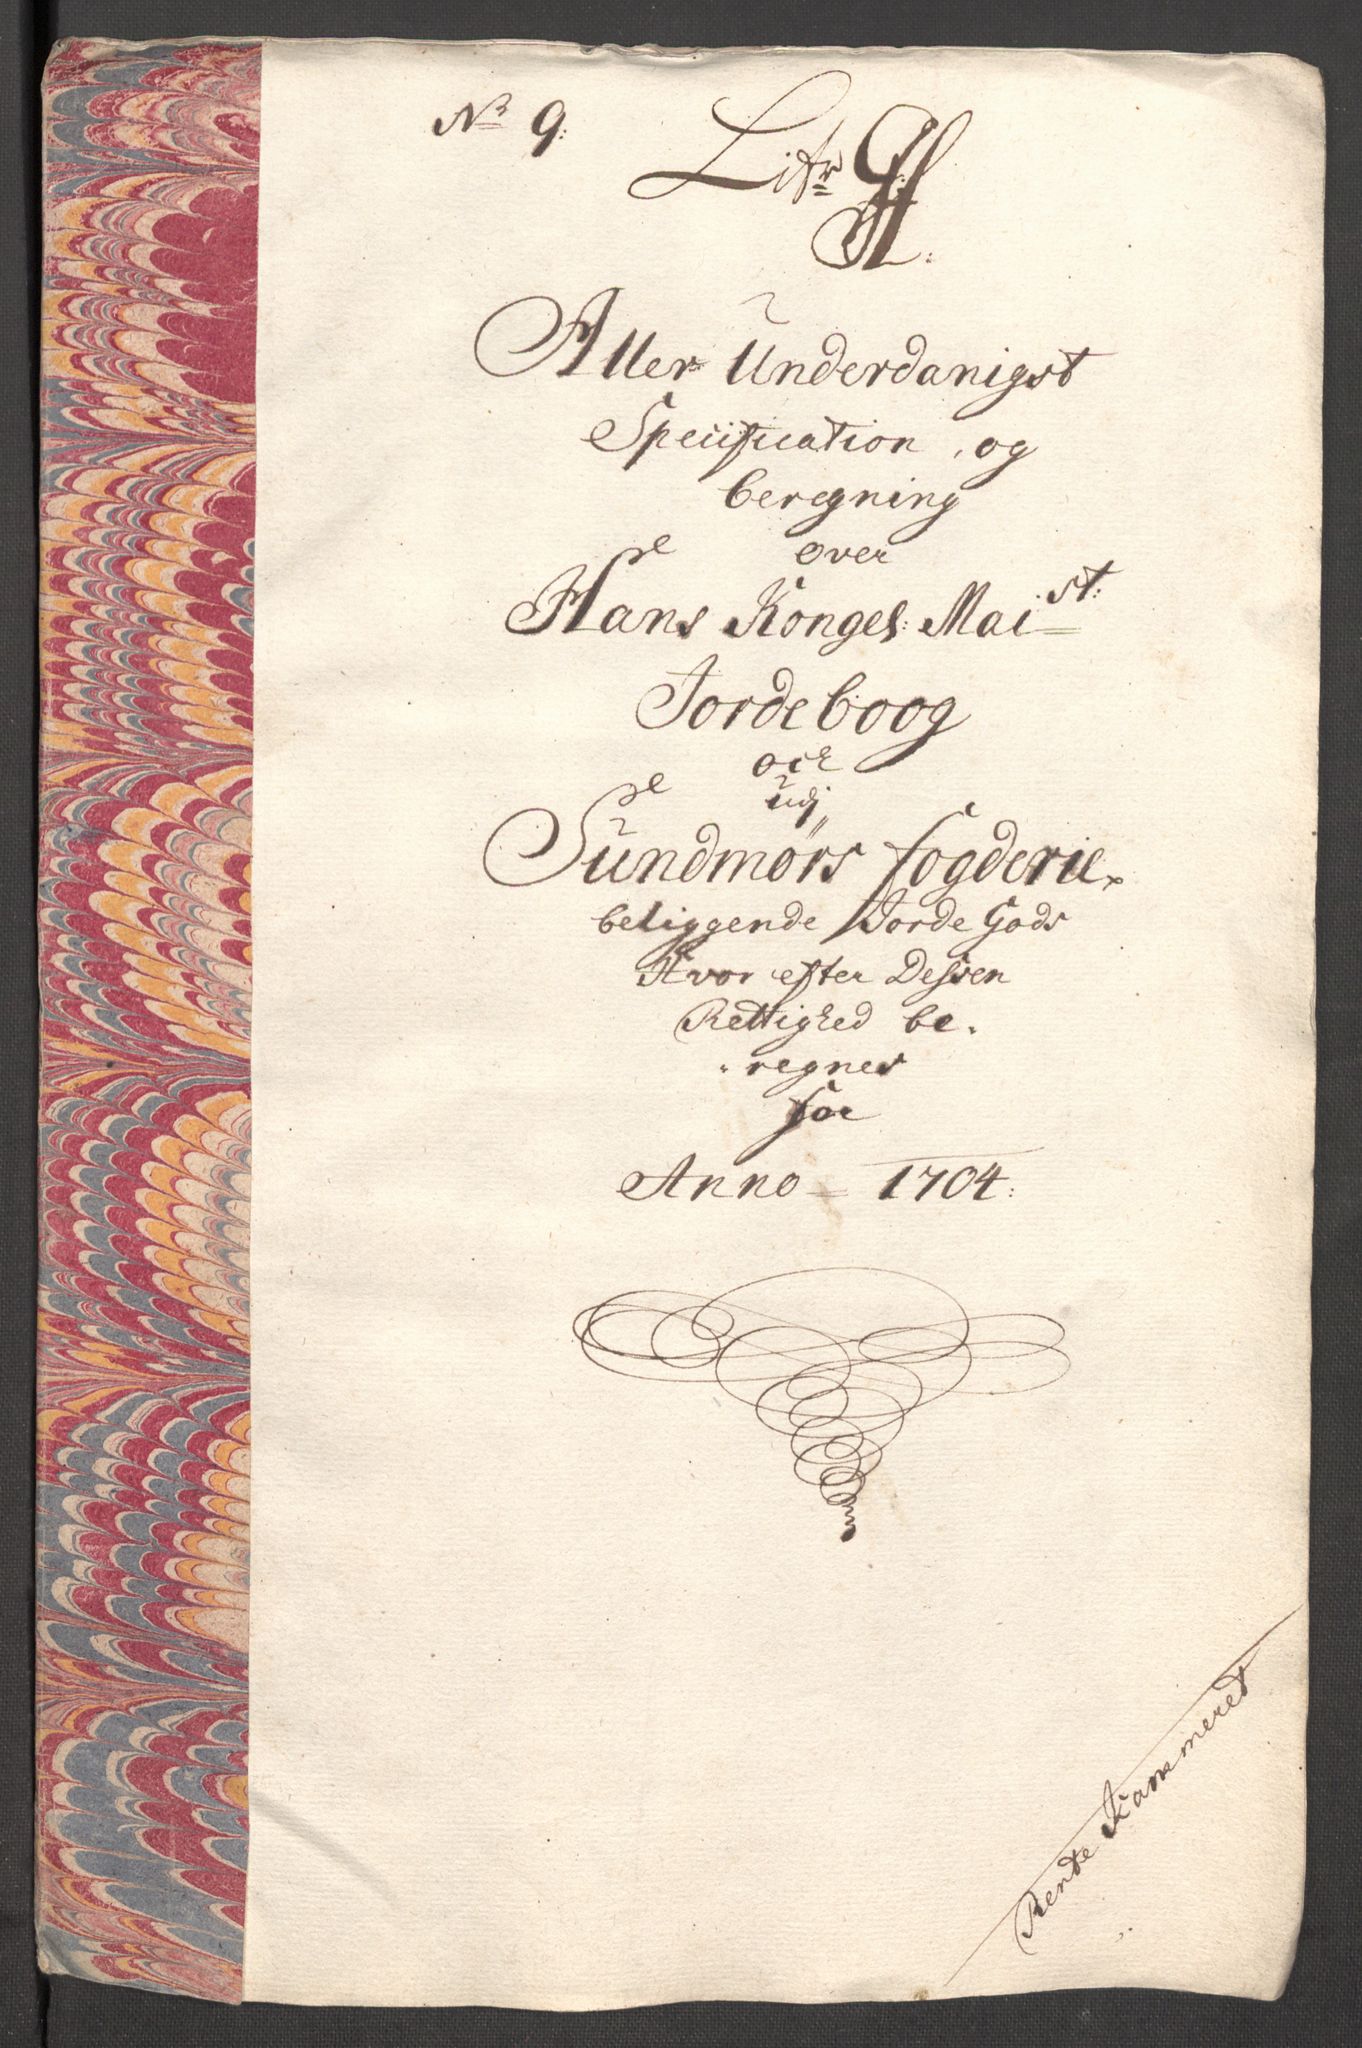 No 9.
Litr H.
Aller Underdanigst
Specification, og
beregning
over
Hans Konges: Maist:
Jordeboog
ock
udj
Sundmørs fogderie
beliggende Jorde Gods
Hvor efter Dessen
Rettighed be-
regnes
for
Anno = 1704:
Rente Kammeret